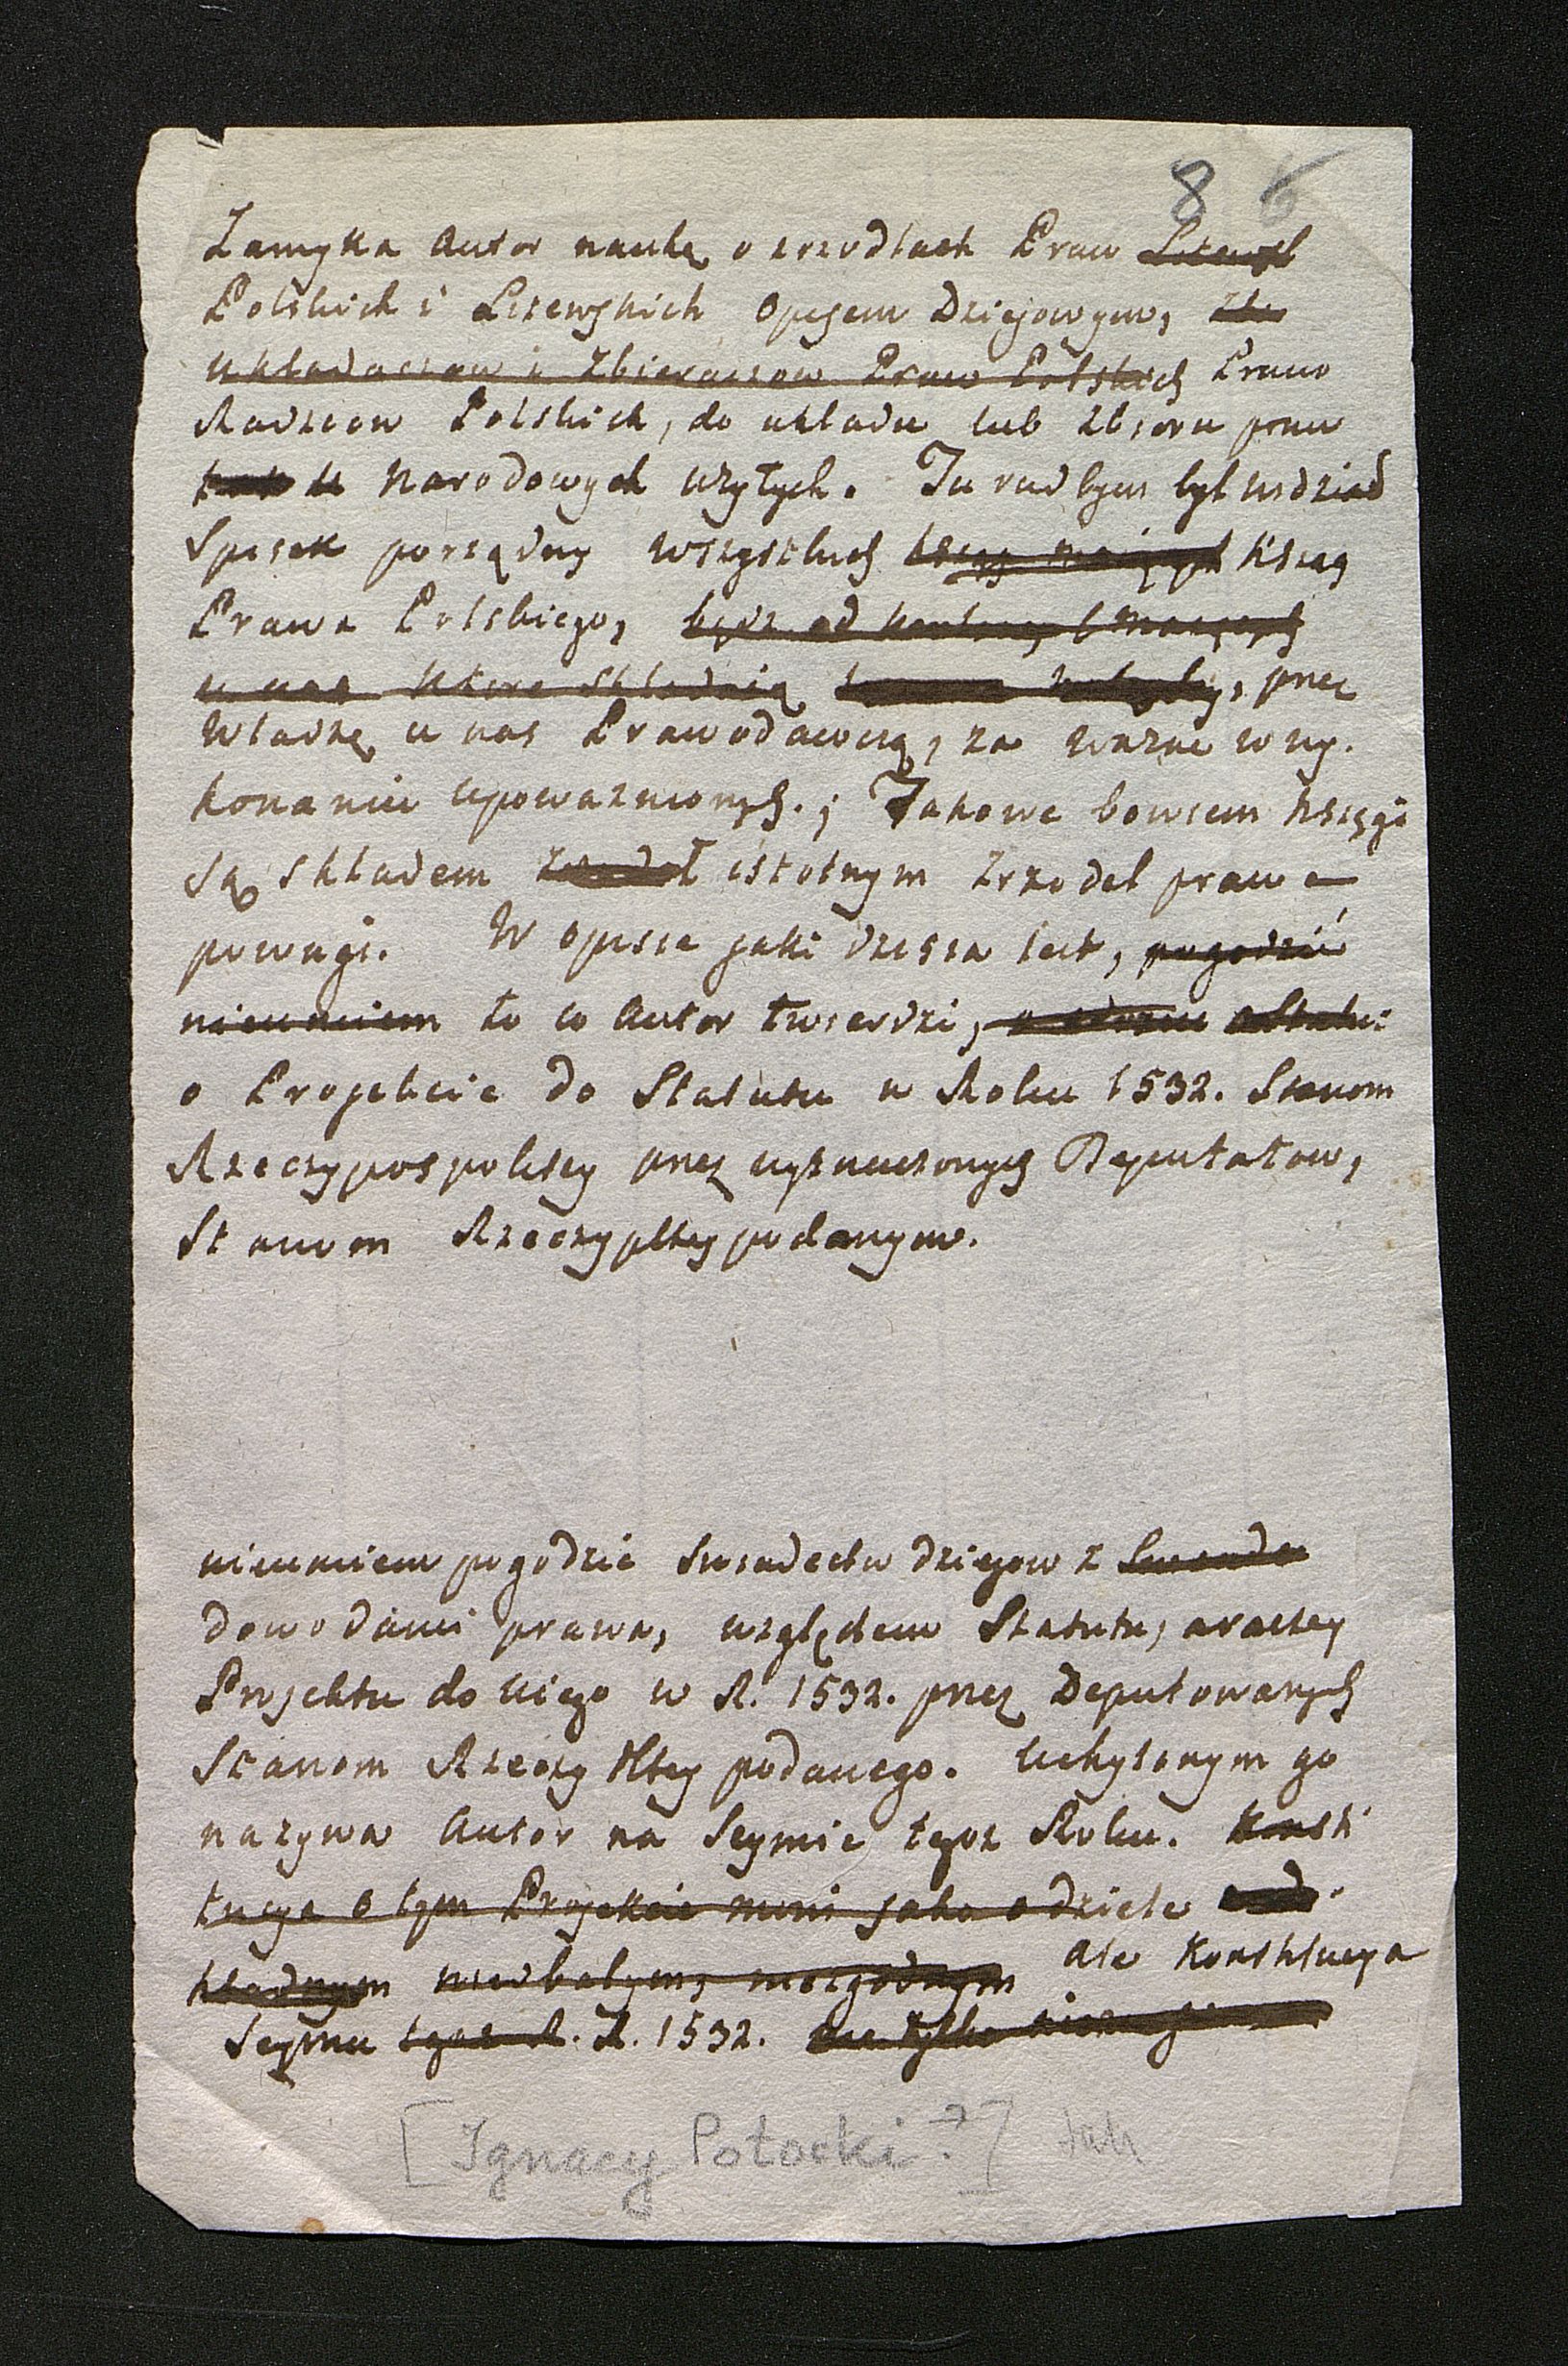 8 6
Zamyka Autor naukę o zrzodłach Praw Litewsk
Polskich i Litewskich Opisem Dziejowym,
układaczow i Zbieraczow Praw Polskich Prawo
Radzcow Polskich, do układu lub zbioru praw
narodowych użytych. Tu rad bym był widział
Spisek porządny wszystkich Ksiąg
Prawa Polskiego, będz od
u nas które składaią przez
Władzę u nas Prawodawczą, za ważne w wy.
konaniu upoważnionych.; Takowe bowiem księgi
są składem istotnym zrzodeł prawa
powagi. W Opisie jaki dzieła iest, pogodzić
nieumiem to co Autor twierdzi,
o Projekcie do Statutu w Roku 1532. Stanom
Rzeczypospolitey przez wyznaczonych Deputatow,
Stanom Rzeczypltey podanym.
nieumiem pogodzić swiadectw dziejow z
dowodami prawa, względem Statutu, araczey
Projektu do niego w R. 1532. przez Deputowanych
Stanom Rzeczy Pltey podanego. Uchylonym go
nazywa Autor na Seymie tegoz Roku. Konsti
tucya o tym Projekcie mowi jako o dziele
niedbałym, niezgodnym ale Konstytucya
Seymu tegoz R. R. 1532.
[Ignacy Potocki?] tak